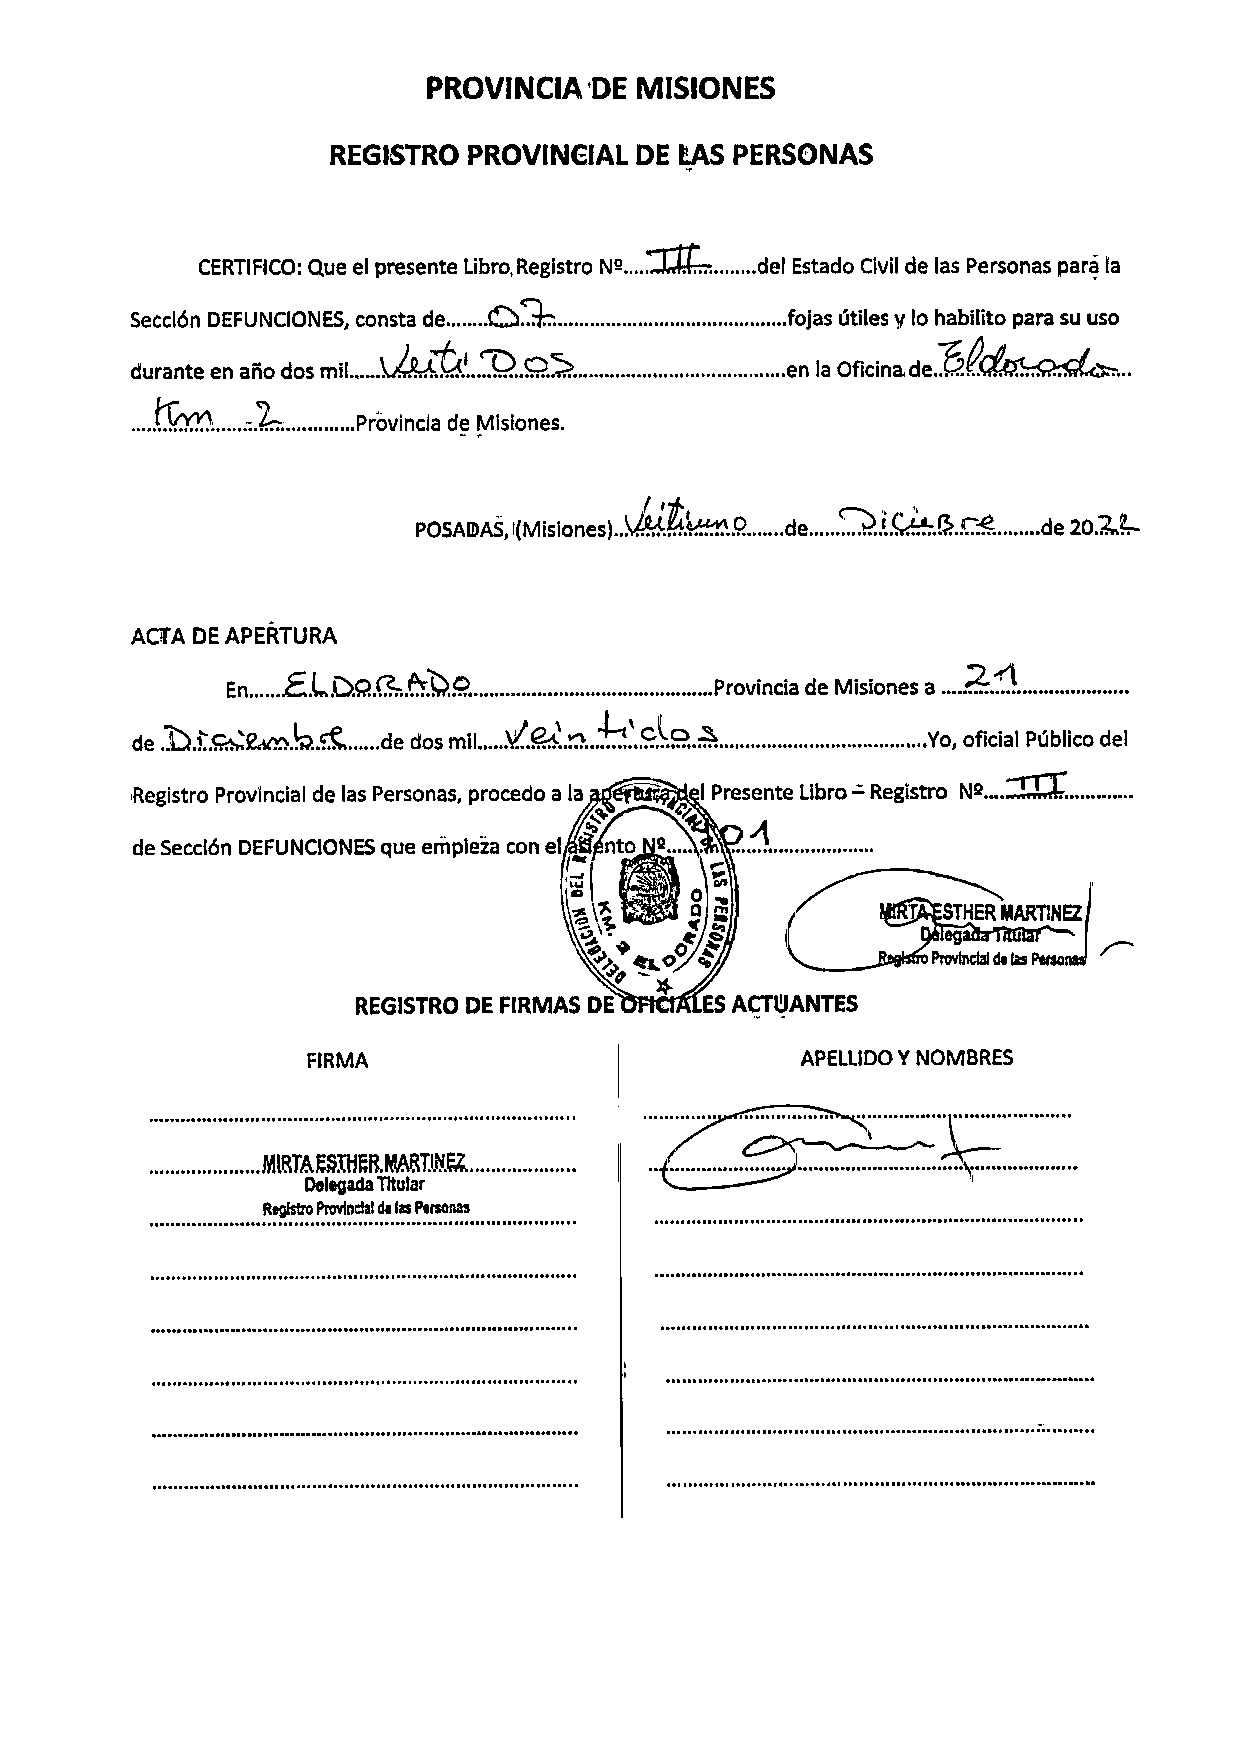 PROVINCIA DE MISIONES
REGISTRO PROVINCIAL DE LAS PERSONAS
CERTIFICO: Que el presente Libro, Registro Nº.....III.........del Estado Civil de las Personas para la
Sección DEFUNCIONES, consta de.......07............................................fojas útiles y lo habilito para su uso
durante en año dos mil......Veiti Dos........................................en la Oficina de..Eldorado...
....Km - 2.............Provincia de Misiones.
POSADAS, (Misiones)..Veitiuno.......de..........Diciebre.........de 20.22
ACTA DE APERTURA
En.......ELDORADO..............................................Provincia de Misiones a ....21.....................
de .Diciembre......de dos mil.....Veintidos........................................Yo, oficial Público del
Registro Provincial de las Personas, procedo a la apertura del Presente Libro – Registro Nº....III.............
de Sección DEFUNCIONES que empieza con el asiento Nº.......01....................
DELEGACION DEL REGISTRO PROVINCIAL DE LAS PERSONAS
KM. 2 ELDORADO
MIRTA ESTHER MARTINEZ
Delegada Titular
Registro Provincial de las Personas
REGISTRO DE FIRMAS DE OFICIALES ACTUANTES
FIRMA APELLIDO Y NOMBRES
MIRTA ESTHER MARTINEZ
Delegada Titular
Registro Provincial de las Personas